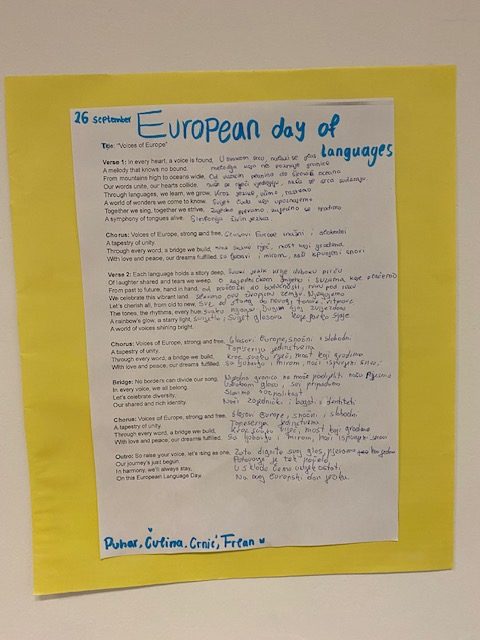 26 september European day of languages
Title: "Voices of Europe"
Verse 1: In every heart, a voice is found, U svakom srcu, nalazi se glas
A melody that knows no bound.
From mountains high to oceans wide, Od visokih planina do širokih oceana
Our words unite, our hearts collide. naše se riječi ujedinjuju, naša se srca sudaraju.
Through languages, we learn, we grow, Kroz jezike, učimo, rastemo
A world of wonders we come to know. Svijet čuda koji upoznajemo
Together we sing, together we strive, zajedno pjevamo, zajedno se
A symphony of tongues alive. Simfonija živih jezika
Chorus: Voices of Europe, strong and free, Glasovi Europe snažni i slobodni
A tapestry of unity.
Through every word, a bridge we build, kroz svaku riječ, most koji gradimo
With love and peace, our dreams fulfilled. sa ljubavi i mirom, naši ispunjeni snovi
Verse 2: Each language holds a story deep, Svaki jezik krije duboku priču
Of laughter shared and tears we weep. O zajedničkom smijehu i suzama koje
From past to future, hand in hand, od prošlosti do budućnosti, ruku pod ruku
We celebrate this vibrant land. slavimo ovu živopisnu zemlju.
Let's cherish all, from old to new, Sve, od starog do novog,
The tones, the rhythms, every hue,
A rainbow's glow, a starry light,
A world of voices shining bright. Svijet glasova koje jarko sjaje
Chorus: Voices of Europe, strong and free, Glasovi Europe, snažni i slobodni
A tapestry of unity. Tapiserija jedinstva
Through every word, a bridge we build, kroz svaku riječ, most koji gradimo
With love and peace, our dreams fulfilled. sa ljubavlju i mirom, naši ispunjeni snovi
Bridge: No borders can divide our song, Nijedna granica ne može podijeliti našu pjesmu
In every voice, we all belong. U svakom glasu, svi pripadamo
Let's celebrate diversity, Slavimo različitost
Our shared and rich identity. Naš zajednički i bogati identitet
Chorus: Voices of Europe, strong and free, Glasovi Europe, snažni i slobodni
A tapestry of unity. Tapiserija jedinstva
Through every word, a bridge we build, Kroz svaku riječ, most koji gradimo
With love and peace, our dreams fulfilled. Sa ljubavlju i mirom, naši ispunjeni snovi
Outro: So raise your voice, let's sing as one, Zato dignite svoj glas, pjevamo kao jedno
Our journey's just begun. Putovanje je tek počelo
In harmony, we'll always stay, U skladu ćemo uvijek ostati
On this European Language Day. Na ovaj Europski dan jezika.
Puhar, Čulina, Crnić, Frean